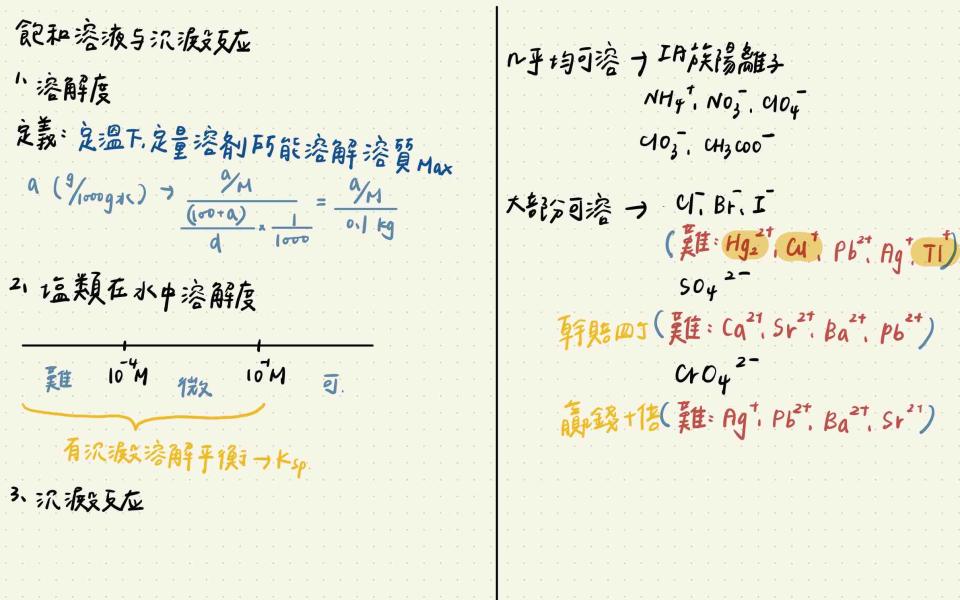 飽和溶液与沉澱反应
1、溶解度
定義：定溫下,定量溶劑所能溶解溶質Max
a (g/100g水) → (a/M)/((100+a)/d × 1/1000) = (a/M)/(0.1 kg)
2、塩類在水中溶解度
難 10⁻⁴M 微 10⁻¹M 可
有沉澱溶解平衡 → Ksp.
3、沉澱反应
几乎均可溶 → IA族陽離子
NH₄⁺、NO₃⁻、ClO₄⁻
ClO₃⁻、CH₃COO⁻
大部份可溶 → Cl⁻、Br⁻、I⁻
(難：Hg₂²⁺、Cu⁺、Pb²⁺、Ag⁺、Tl⁺)
SO₄²⁻
(難：Ca²⁺、Sr²⁺、Ba²⁺、Pb²⁺)
CrO₄²⁻
贏錢十倍(難：Ag⁺、Pb²⁺、Ba²⁺、Sr²⁺)